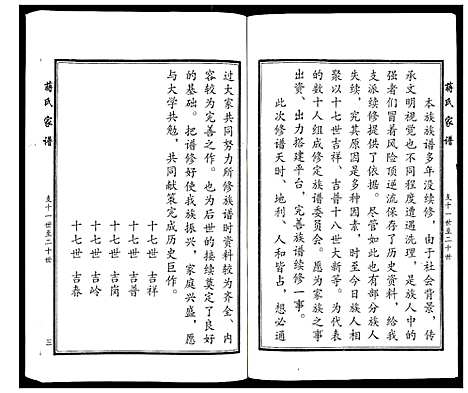 蒋氏家谱
支十一世至二十世
本族族谱多年没续修，由于社会背景，传
承文明视觉，也不同程度遭遇洗理，是族人中的
强者们冒着风险顶逆流保存了历史资料，给我
支派续修提供了依据。尽管如此也有部分族人
失续，究其原因是多种因素，时至今日族人相
聚以十七世吉祥、吉普十八世大新等。为代表
的数十人组成修定族谱委员会。愿为家族之事
出资、出力搭建平台，完善族谱续修一事。
此次修谱天时、地利、人和皆占，想必通
过大家共同努力所修族谱时资料较为齐全、内
容较为完善之作。也为后世的接续奠定了良好
的基础。把谱修好使我族振兴，家庭兴盛，愿
与大学共勉，共同献策完成历史巨作。
十七世　吉祥
十七世　吉普
十七世　吉岗
十七世　吉岭
十七世　吉春
蒋氏家谱
支十一世至二十世
三